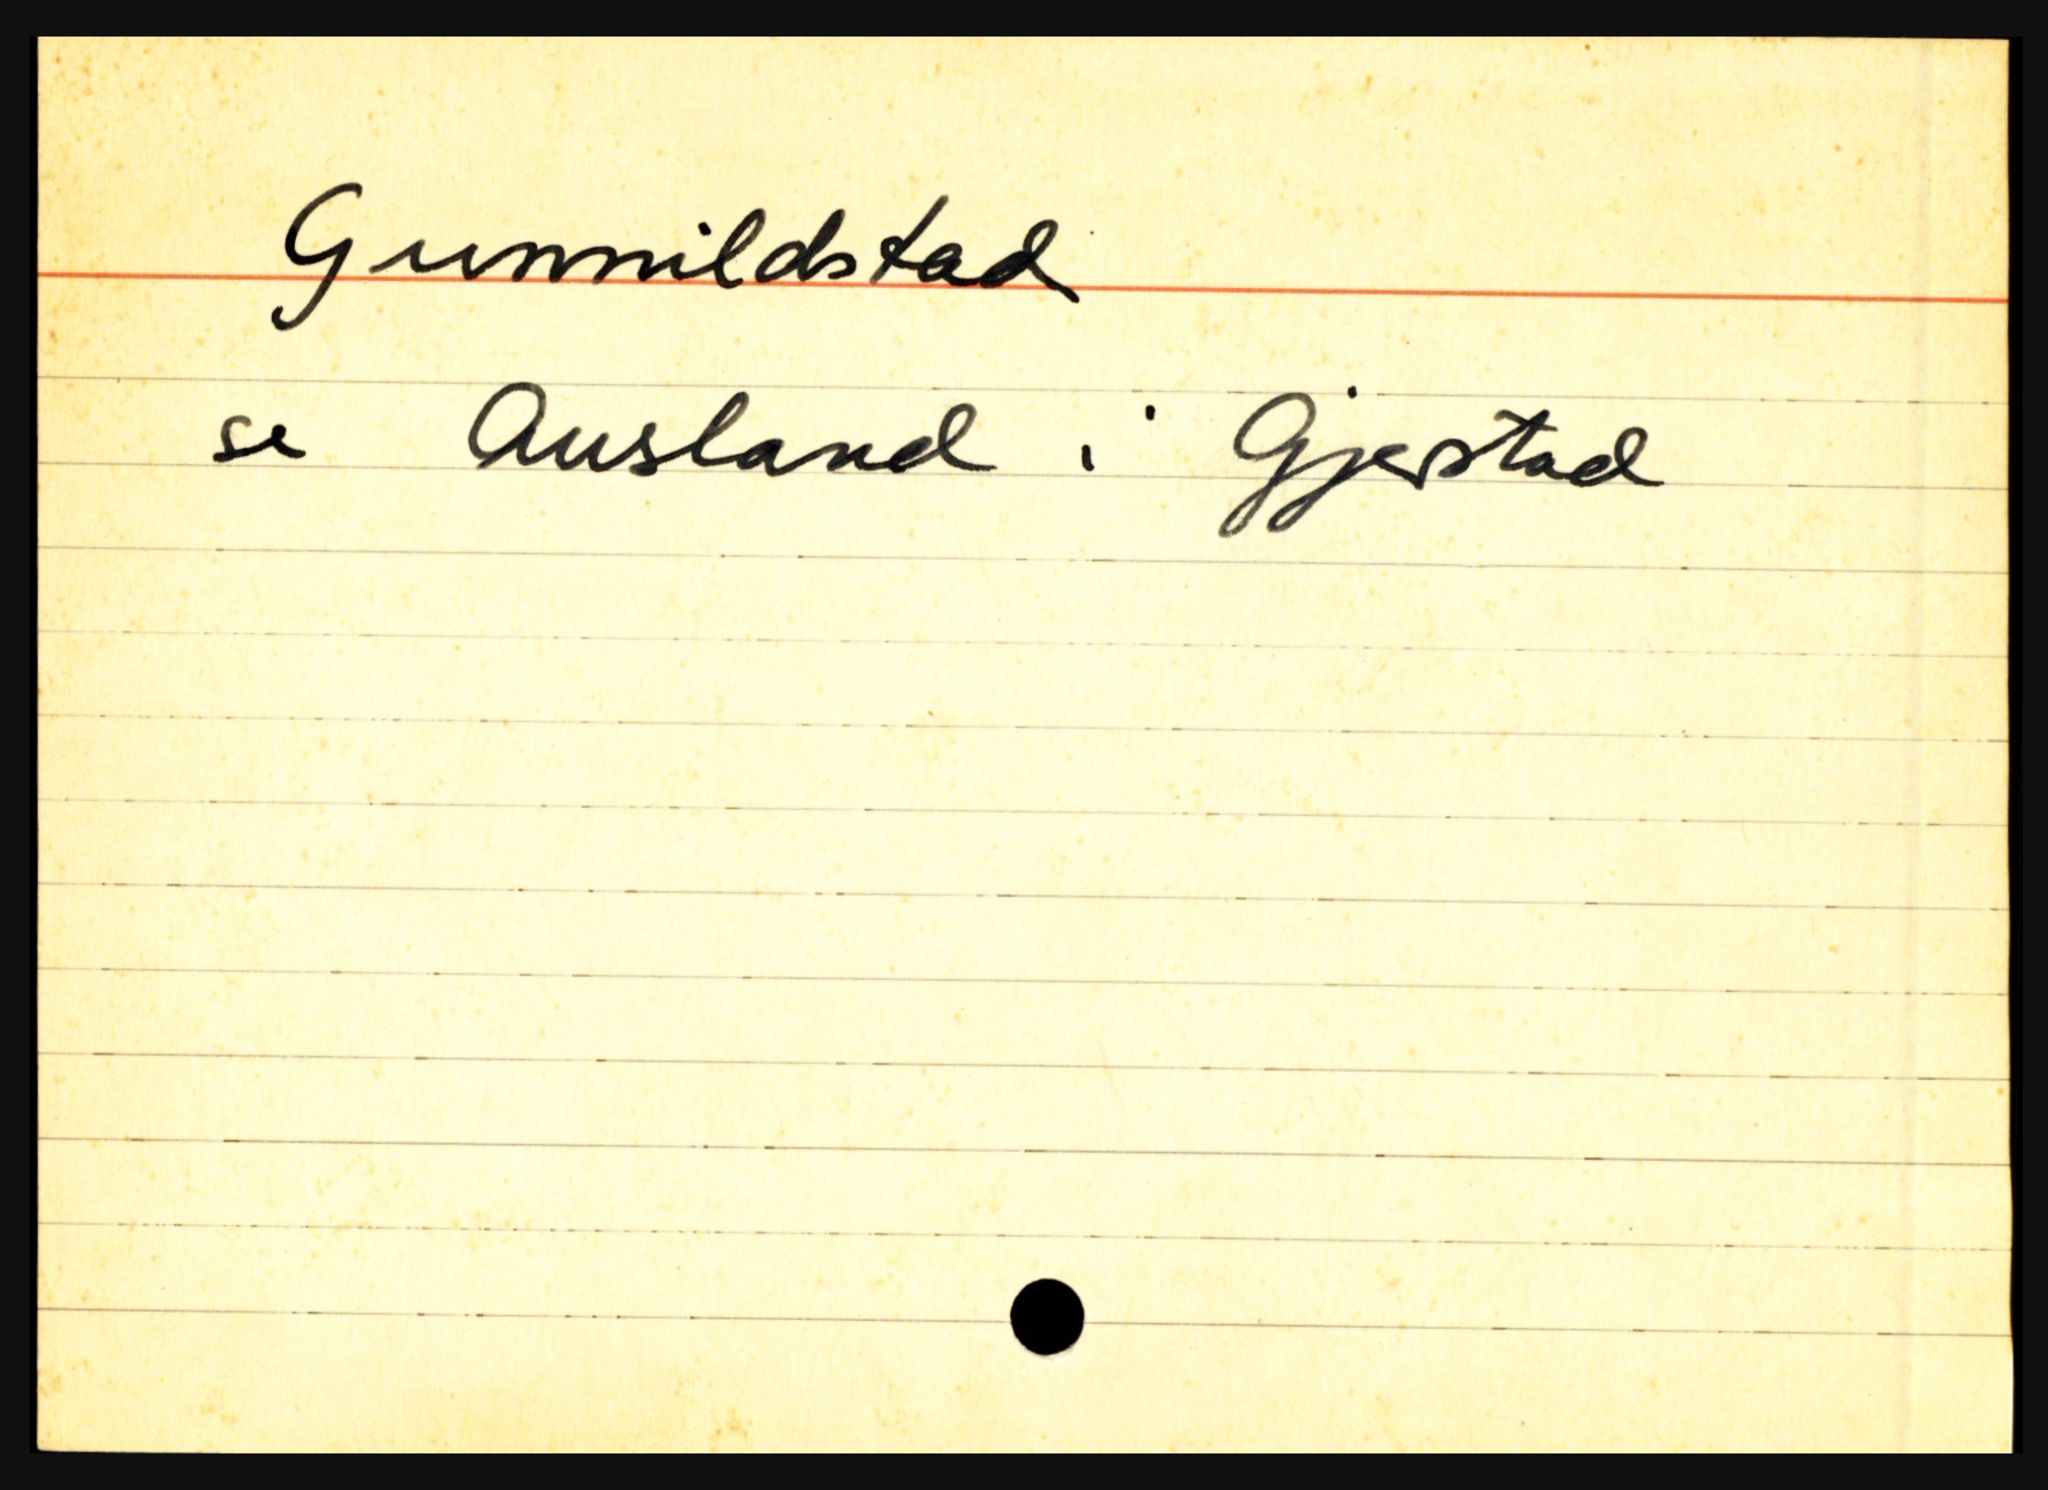 Gunnildstad
se Ausland i Gjerstad